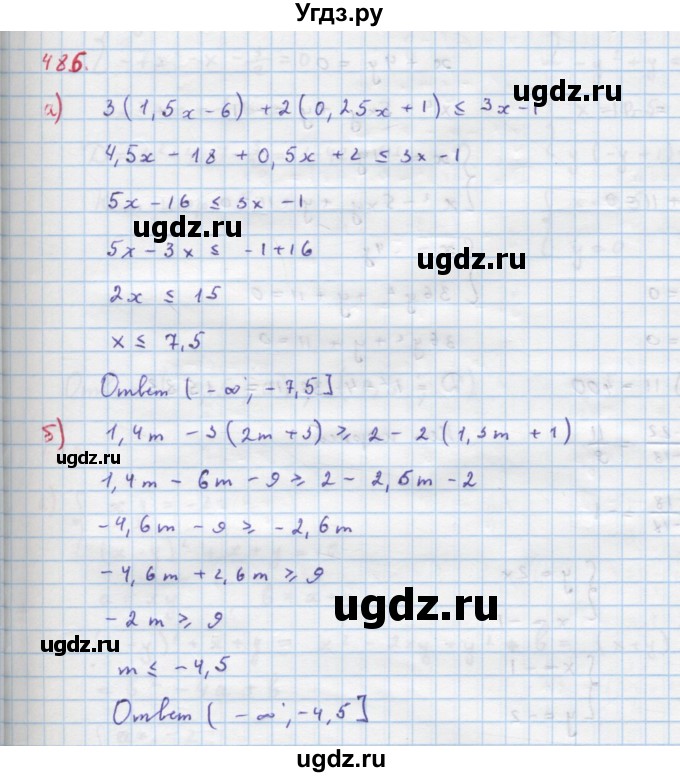 Угдз.ру
486.
а) 3(1,5x-6) + 2(0,25x+1) ≤ 3x-1
ugdz.ru
4,5x - 18 + 0,5x + 2 ≤ 3x - 1
ugdz.ru
5x - 16 ≤ 3x - 1
ugdz.ru
5x - 3x ≤ -1+16
ugdz.ru
2x ≤ 15
x ≤ 7,5
Ответ (-∞; -7,5]
ugdz.ru
б) 1,4m - 3(2m+3) ≥ 2 - 2(1,3m + 1)
ugdz.ru
1,4m - 6m - 9 ≥ 2 - 2,6m - 2
-4,6m - 9 ≥ -2,6m
-4,6m + 2,6m ≥ 9
ugdz.ru
-2m ≥ 9
ugdz.ru
m ≤ -4,5
Ответ (-∞; -4,5]
ugdz.ru